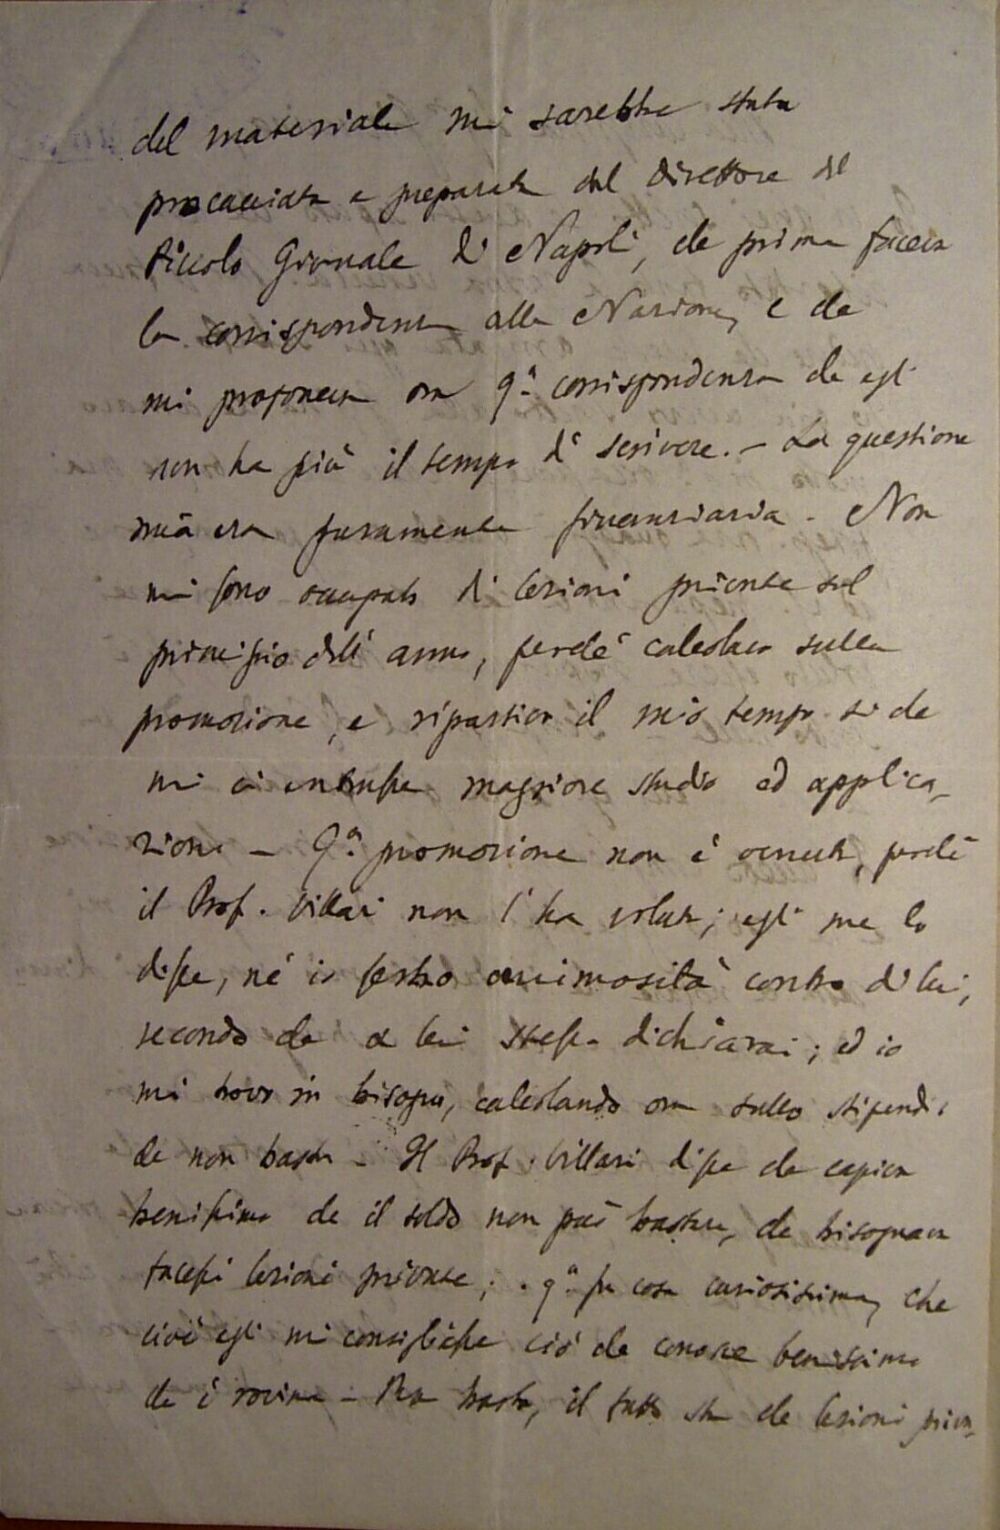 del materiale mi sarebbe stata
procacciata e preparata dal Direttore del
Piccolo Giornale di Napoli, che prima faceva
la corrispondenza alla Nazione, e che
mi proponeva ora q.ª corrispondenza che egli
non ha più il tempo di scrivere. – La questione
mia era puramente finanziaria. Non
mi sono occupato di lezioni private sul
principio dell'anno, perché calcolavo sulla
promozione, e ripartiva il mio tempo si che
mi ci entrasse maggiore studio ed applica-
zione – Q.ª promozione non è venuta, perchè
il Prof. Villari non l'ha voluta; egli me lo
disse, né io serbo animosità contro di lui,
secondo che a lei stessa dichiarai; ed io
mi trovo in bisogno, calcolando ora sullo stipendio
che non basta – Il Prof. Villari disse che capiva
benissimo che il soldo non può bastare, che bisognava
facessi lezioni private; q.ª fu cosa curiosissima, che
cioè egli mi consigliasse ciò che conosce benissimo
che è rovina – Ma basta, il fatto sta che lezioni priva-